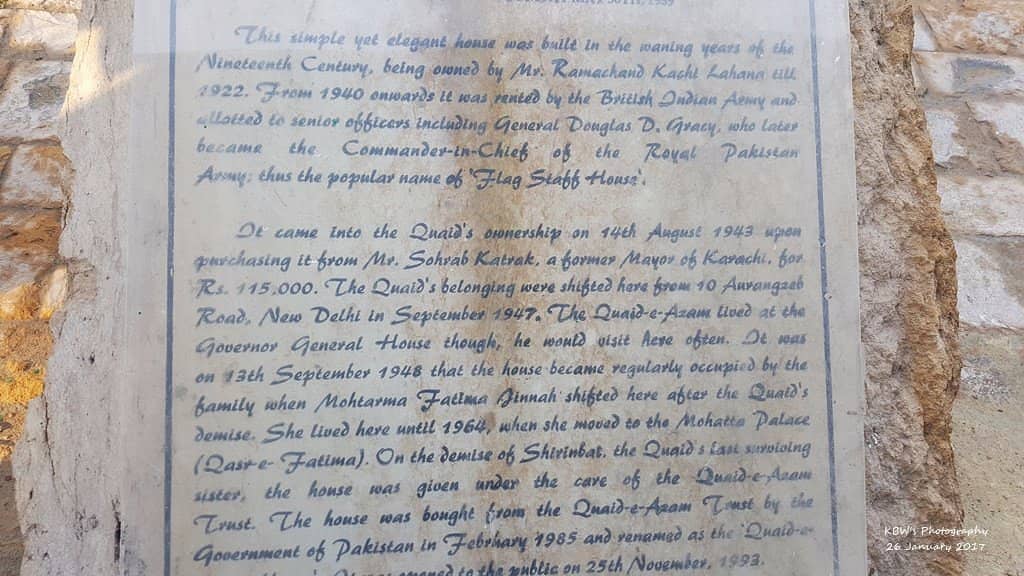 This simple yet elegant house was built in the waning years of the
Nineteenth Century, being owned by Mr. Ramachand Kachi Lahana till
1922. From 1940 onwards it was rented by the British Indian Army and
allotted to senior officers including General Douglas D. Gracy, who later
became the Commander-in-Chief of the Royal Pakistan
Army; thus the popular name of 'Flag Staff House'.
It came into the Quaid's ownership on 14th August 1943 upon
purchasing it from Mr. Sohrab Katrak, a former Mayor of Karachi, for
Rs. 115,000. The Quaid's belonging were shifted here from 10 Aurangzeb
Road, New Delhi in September 1947. The Quaid-e-Azam lived at the
Governor General House though, he would visit here often. It was
on 13th September 1948 that the house became regularly occupied by the
family when Mohtarma Fatima Jinnah shifted here after the Quaid's
demise. She lived here until 1964, when she moved to the Mohatta Palace
(Qasr-e-Fatima). On the demise of Shirinbai, the Quaid's last surviving
sister, the house was given under the care of the Quaid-e-Azam
Trust. The house was bought from the Quaid-e-Azam Trust by the
Government of Pakistan in Febrhary 1985 and renamed as the 'Quaid-e-
opened to the public on 25th November, 1993.
KBW's Photography
26 January 2017